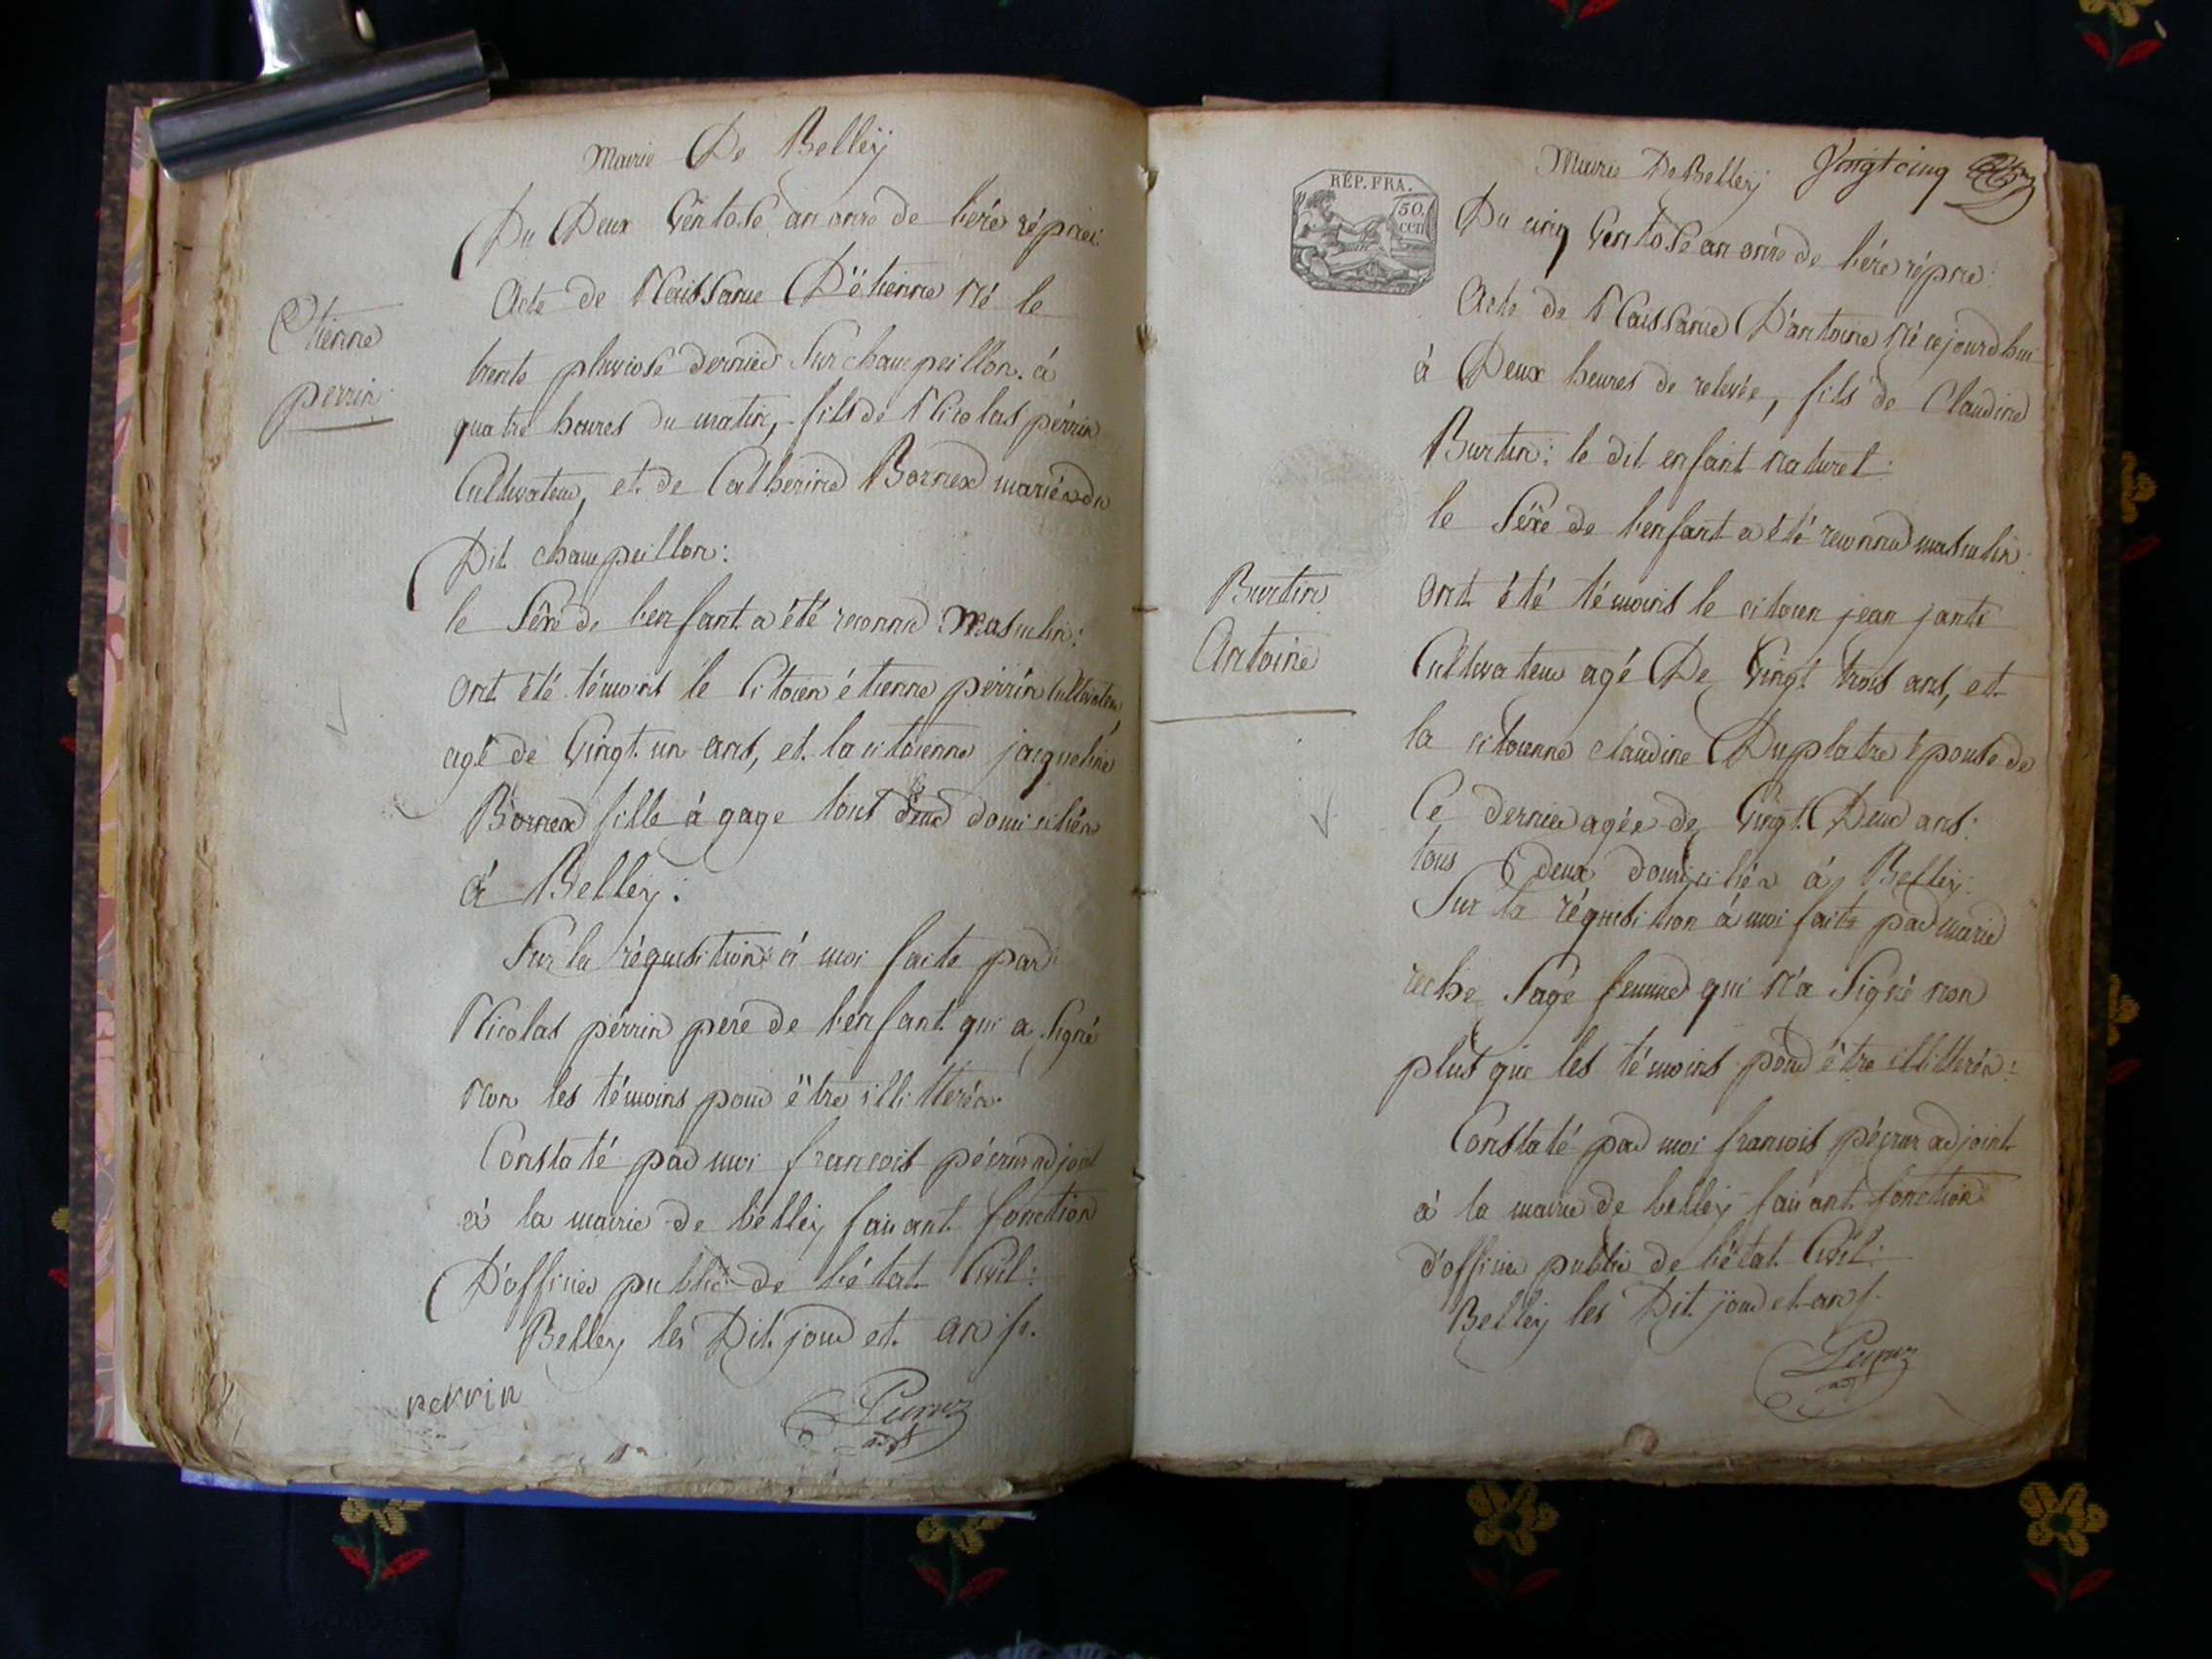 Mairie De Belleÿ
Du Deux Ventose an onze de l'ère répne:
Acte de Naissance D'ëtienne Né le
trente pluviose dernier Sur champeillon. à
quatre heures du matin, fils de Nicolas pérrin
Cultivateur, et de Catherine Bornex mariés du
Dit champeillon:
le Sêxe de l'enfant a été reconnu masculin:
ont été témoins le Citoien étienne perrin Cultivateur
agé de Vingt un ans, et la citoienne jacqueline
Bornex fille à gage tout deux domiciliés
à Belleÿ:
Sur la réquisition à moi faite par
Nicolas pérrin pere de l'enfant qui a signé
Non les témoins pour être illittérés.
Constaté par moi francois adjoint
à la mairie de belleÿ faisant fonction
D'officier public de l'état Civil:
Belleÿ les Dit jour et an
perrin
Etienne
perrin
Mairie De Belleÿ Vingt cinq
RÉP. FRA.
50
cen
Du cinq Ventose an onze de l'ére répne:
Acte de Naissance D'antoine Né cejourd'hui
à Deux heures de relevée, fils de Claudine
Burtin: le dit enfant Naturel:
le Sêxe de l'enfant a été reconnu masculin:
ont été témoins le citoien jean janti
Cultivateur agé De Vingt trois ans, et
la citoienne claudine Duplatre épouse de
Ce dernier agée de Vingt Deux ans:
tous deux domiciliés à Belleÿ:
Sur la réquisition à moi faite par marie
Sage femme qui N'a Signé non
plus que les témoins pour être illittérés:
Constaté par moi francois adjoint
à la mairie de belleÿ faisant fonction
d'officier public de l'état Civil:
Belleÿ les Dit jour et an
Burtin
Antoine